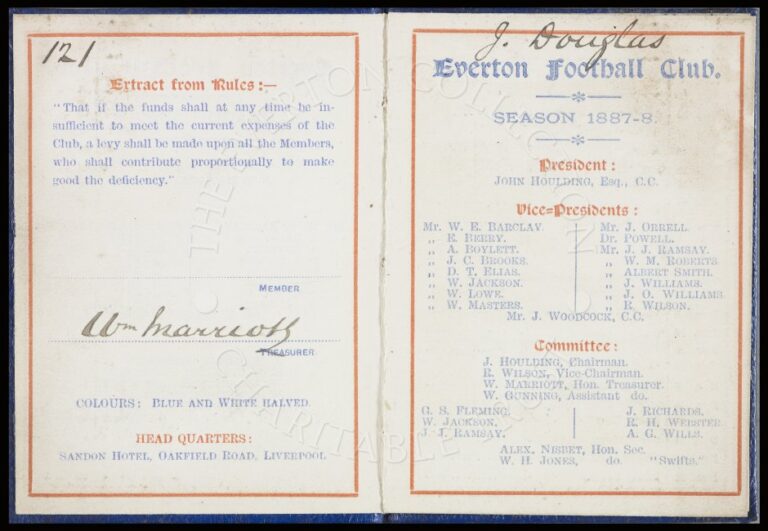 121
Extract from Rules :—
"That if the funds shall at any time be in-
sufficient to meet the current expenses of the
Club, a levy shall be made upon all the Members,
who shall contribute proportionally to make
good the deficiency."
MEMBER
Wm Marriott
TREASURER
COLOURS: BLUE AND WHITE HALVED.
HEAD QUARTERS:
SANDON HOTEL, OAKFIELD ROAD, LIVERPOOL
J. Douglas
Everton Football Club.
SEASON 1887-8.
President :
JOHN HOULDING, Esq., C.C.
Vice=Presidents :
Mr. W. E. BARCLAY. Mr. J. ORRELL.
„ E. BERRY. Dr. POWELL.
„ A. BOYLETT. Mr. J. J. RAMSAY.
„ J. C. BROOKS. „ W. M. ROBERTS
„ D. T. ELIAS. „ ALBERT SMITH.
„ W. JACKSON. „ J. WILLIAMS.
„ W. LOWE. „ J. O. WILLIAMS.
„ W. MASTERS. „ R. WILSON.
Mr. J. WOODCOCK, C.C.
Committee :
J. HOULDING, Chairman.
R. WILSON, Vice-Chairman.
W. MARRIOTT, Hon. Treasurer.
W. GUNNING, Assistant do.
G. S. FLEMING. J. RICHARDS.
W. JACKSON. R. H. WEBSTER.
J. J. RAMSAY. A. G. WILLS.
ALEX. NISBET, Hon. Sec.
W. H. JONES, do. "Swifts."
© THE EVERTON COLLECTION CHARITABLE TRUST